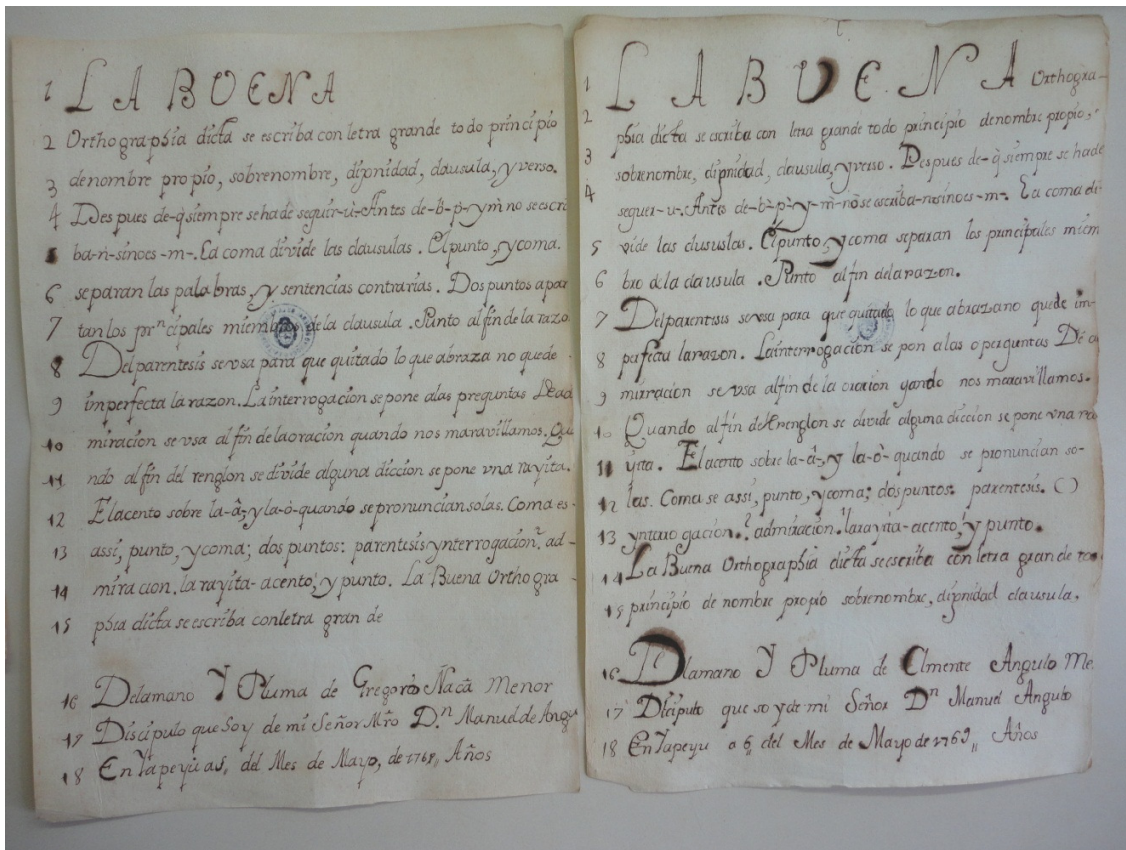 1 LA BUENA
2 Orthographia dicta se escriba con letra grande todo principio
3 de nombre propio, sobrenombre, dignidad, clausula, y verso.
4 Despues de-q̃ siempre se ha de seguir-ù-Antes de-b̀-p̀-y m̀ no se escri
ba-ǹ-sinoes-m-. La coma divide las clausulas. El punto, y coma.
6 separan las palabras, y sentencias contrarias. Dos puntos apar
7 tan los prncipales miembros de la clausula. Punto al fin de la razo
8 Del parentesis se vsa para que quitado lo que abraza no quede
9 imperfecta la razon. La interrogacion se pone alas preguntas De ad
10 miracion se vsa al fin de la oracion quando nos maravillamos. Qua
11 ndo al fin del renglon se divide alguna diccion se pone vna rayita.
12 El acento sobre la-â-, y la-ò-quando se pronuncian solas. Coma es-
13 assi, punto, y coma; dos puntos: parentesis ynterrogacion? ad-
14 miracion. la rayita-acento,' y punto. La Buena Orthogra-
15 phia dicta se escriba con letra gran de
16 De la mano Y Pluma de Gregorio Ñacã Menor
17 Discipulo que Soy de mi Señor Mro Dn Manuel de Angu
18 En Yapeyù a 5,, del Mes de Mayo, de 1769,, Años
1 LA BUENA Orthogra-
2 phia dicta se escriba con letra grande todo principio de nombre propio,
3 sobrenombre, dignidad, clausula, y verso. Despues de-q̃ siempre se hade
4 seguer-u-. Antes de-b̀-p̀-y-m̀-nò se escriba-n-sinoes-m-. La coma di
5 vide las clususlas. El punto, y coma separan los principales miem
6 bro de la clausula. Punto al fin de la razon.
7 Del parentesis se vsa para que quitado lo que abraza no quede im-
8 pafecta la razon. La interrogacion se pon a las o perguntas De a
9 mirracion se vsa al fin de la oracion qando nos maravillamos.
10 Quando al fin del renglon se divide alguna diccion se pone vna ra
11 yita. El acento sobre la-â-, y la-ò-quando se pronuncian so-
12 las. Coma se assi, punto, y coma; dos puntos: parentesis. ( )
13 yntaro gacion.? admiracion! la rayita-acento,' y punto.
14 La Buena Orthographia dicta se escriba con letra gran de to
15 principio de nombre propio sobrenombre, dignidad clausula.
16 De la mano Y Pluma de Clmente Angulo Me
17 Dicipulo que so y de mi Señor Dn Manuel Angulo
18 En Yapeyu a 6,, del Mes de Mayo de 1769,, Años